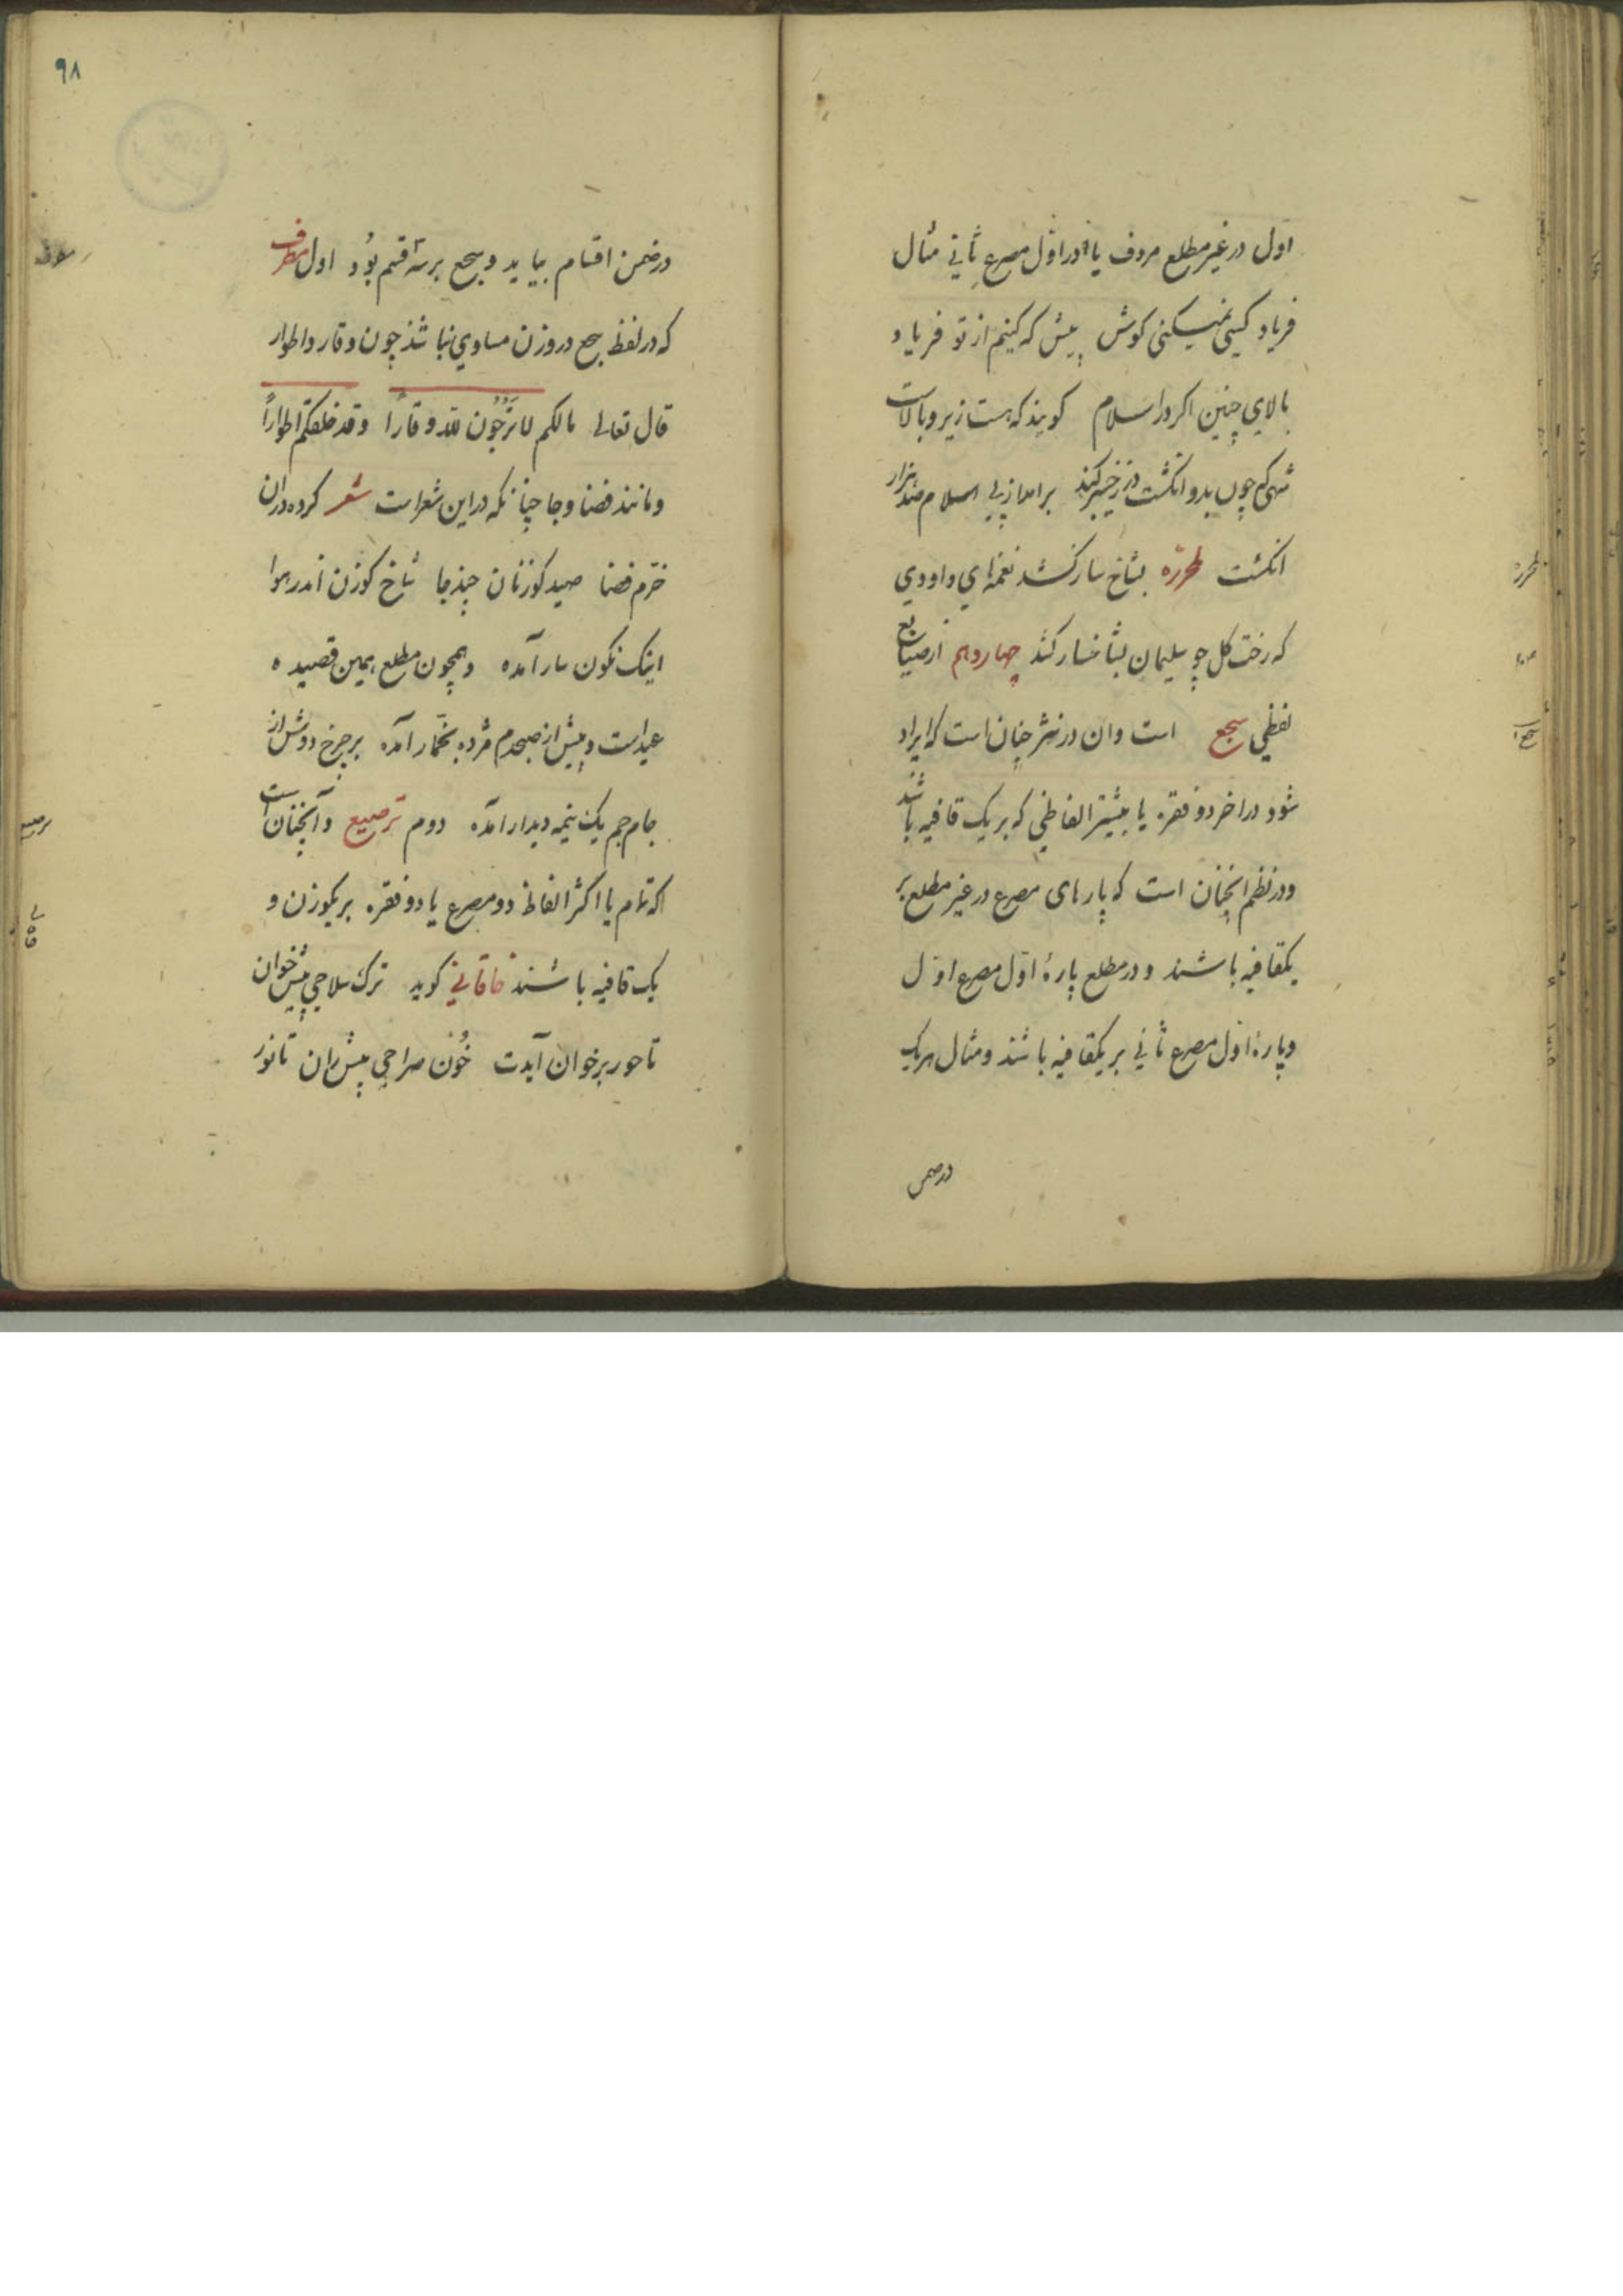 اول در غیر مطلع مردف یا در اول مصرع ثانی مثال
فریاد کسی نمیکنی کوش پیش که کنیم از تو فریاد
بالای چنین اکر در اسلام کویند که هست زیر و بالاست
شهی که چون بدو انکشت در ز خیبر کند برامد از پی اسلام صد هزار
انکشت مطرزه بشاخسار کشد نغمهای داودی
که رخت کل چو سلیمان بشاخسار کشد چهاردهم از صنایع
لفظی سجع است و ان در نثر چنان است که ایراد
شود در اخر دو فقره یا بیشتر الفاظی که بر یک قافیه باشند
و در نظم انچنان است که پارهای مصرع در غیر مطلع بر
یکقافیه باشند و در مطلع پارهٔ اول مصرع اول
و پارهٔ اول مصرع ثانی بر یکقافیه باشند و مثال هریک
درضمن
۹۸
در ضمن اقسام بیاید و سجع بر سه قسم بود اول مطرف
که در لفظ سجع در وزن مساوی نباشند چون وقار و اطوار
قال تعالی مالکم لا ترجون لله وقارا وقد خلقکم اطوارا
و مانند فضا و جا چنانکه در این شعر است شعر کرده در ان
خرم فضا صید کوزنان چند جا شاخ کوزن اندر هوا
اینک نکون سار آمده و همچون مطلع همین قصیده
عید است و پیش از صبحدم مژده بخمار آمده بر چرخ دوش از
جام جم یک نیمه دیدار آمده دوم ترصیع و آنچنان است
که تمام یا اکثر الفاظ دو مصرع یا دو فقره بر یکوزن و
یک قافیه باشند خاقانی کوید ترک سلاحی پیش خوان
تا حور بر خوان آیدت خون صراحی پیش ران تا نور